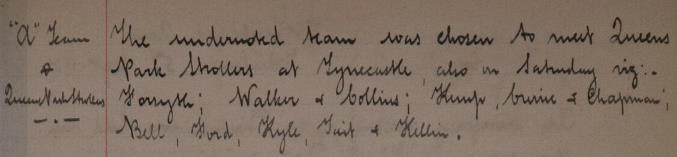 "A" Team The undernoted team was chosen to meet Queens
& Park Strollers at Tynecastle, also on Saturday viz:-
Queens Park Strollers Forsyth; Walker & Collins; Kemp, &Chapman;
Bell, Ford, Kyle, Tait & Killin.